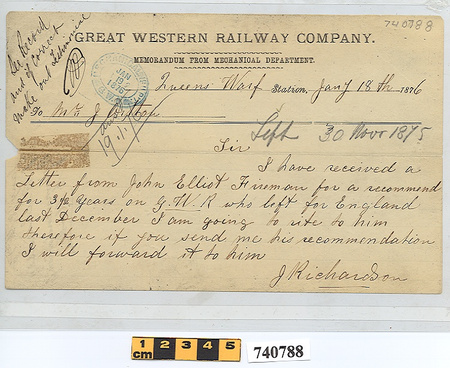 740788
See Record
and if correct
make out Testimonial
GREAT WESTERN RAILWAY COMPANY.
MEMORANDUM FROM MECHANICAL DEPARTMENT.
JAN
19
1876
Queens Warf Station, Jany 18th 1876
To Mr J
ansd
19.1.
Left 30 Novr 1875
Sir
I have received a
Letter from John Elliot Fireman for a recommend
for 3½ years on G.W.R who left for England
last December I am going to rite to him
therefore if you send me his recommendation
I will forward it to him
J Richardson
1 2 3 4 5
cm
740788